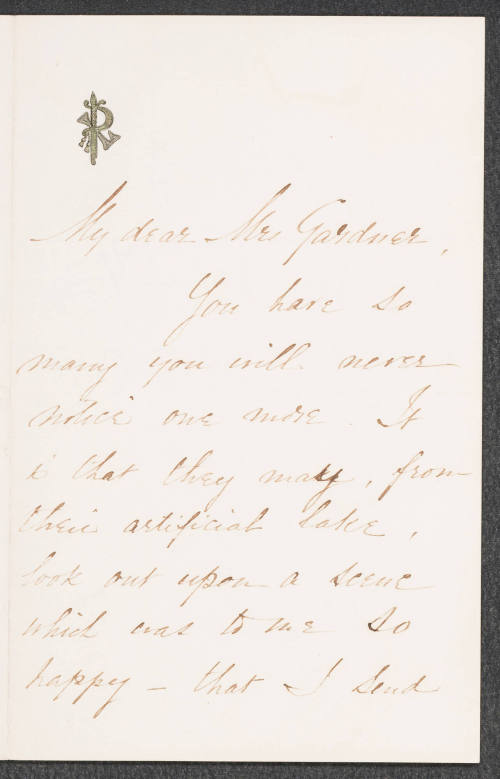 My dear Mrs Gardner,
You have so
many you will never
notice one more. It
is that they may, from
their artificial lake,
look out upon a scene
which was to me so
happy – that I send